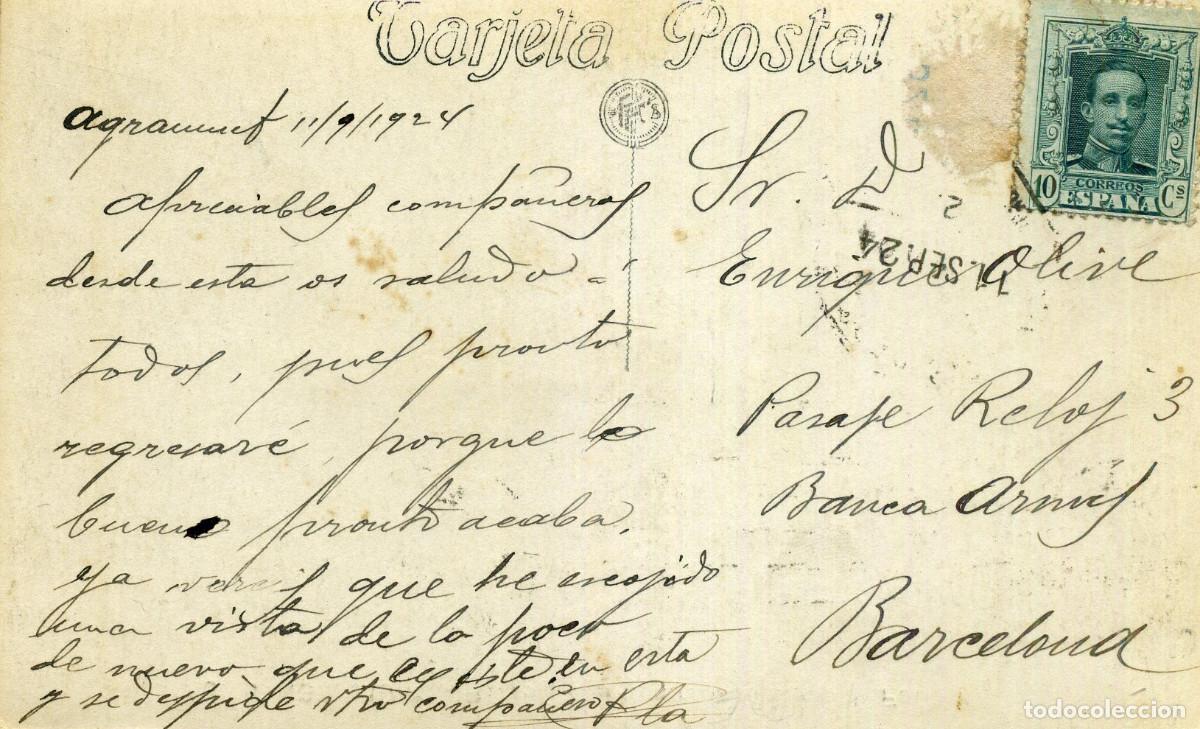 Tarjeta Postal
Agramunt 11/9/1924
Apreciables compañeros
desde esta os saludo a
todos, pues pronto
regresaré, porque lo
bueno pronto acaba,
ya vereis que he escojido
una vista de lo poco
de nuevo que existe en esta
y se despide vtro compañero Pla
Sr. D.
Enrique Olivé
Pasaje Reloj 3
Banca Arnus
Barcelona
11.SEP.24
CORREOS
ESPAÑA
10 Cs
todocoleccion